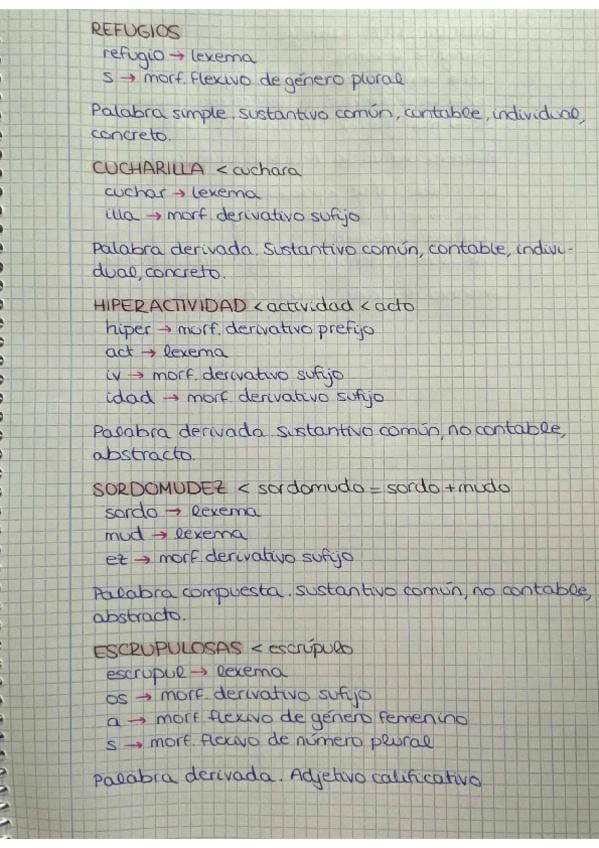 REFUGIOS
refugio → lexema
s → morf. flexivo de género plural
Palabra simple. Sustantivo común, contable, individual,
concreto.
CUCHARILLA < cuchara
cuchar → lexema
illa → morf. derivativo sufijo
Palabra derivada. Sustantivo común, contable, indivi-
dual, concreto.
HIPERACTIVIDAD < actividad < acto
hiper → morf. derivativo prefijo
act → lexema
iv → morf. derivativo sufijo
idad → morf. derivativo sufijo
Palabra derivada. Sustantivo común, no contable,
abstracto.
SORDOMUDEZ < sordomudo = sordo + mudo
sordo → lexema
mud → lexema
ez → morf. derivativo sufijo
Palabra compuesta. Sustantivo común, no contable,
abstracto.
ESCRUPULOSAS < escrúpulo
escrupul → lexema
os → morf. derivativo sufijo
a → morf. flexivo de género femenino
s → morf. flexivo de número plural
Palabra derivada. Adjetivo calificativo